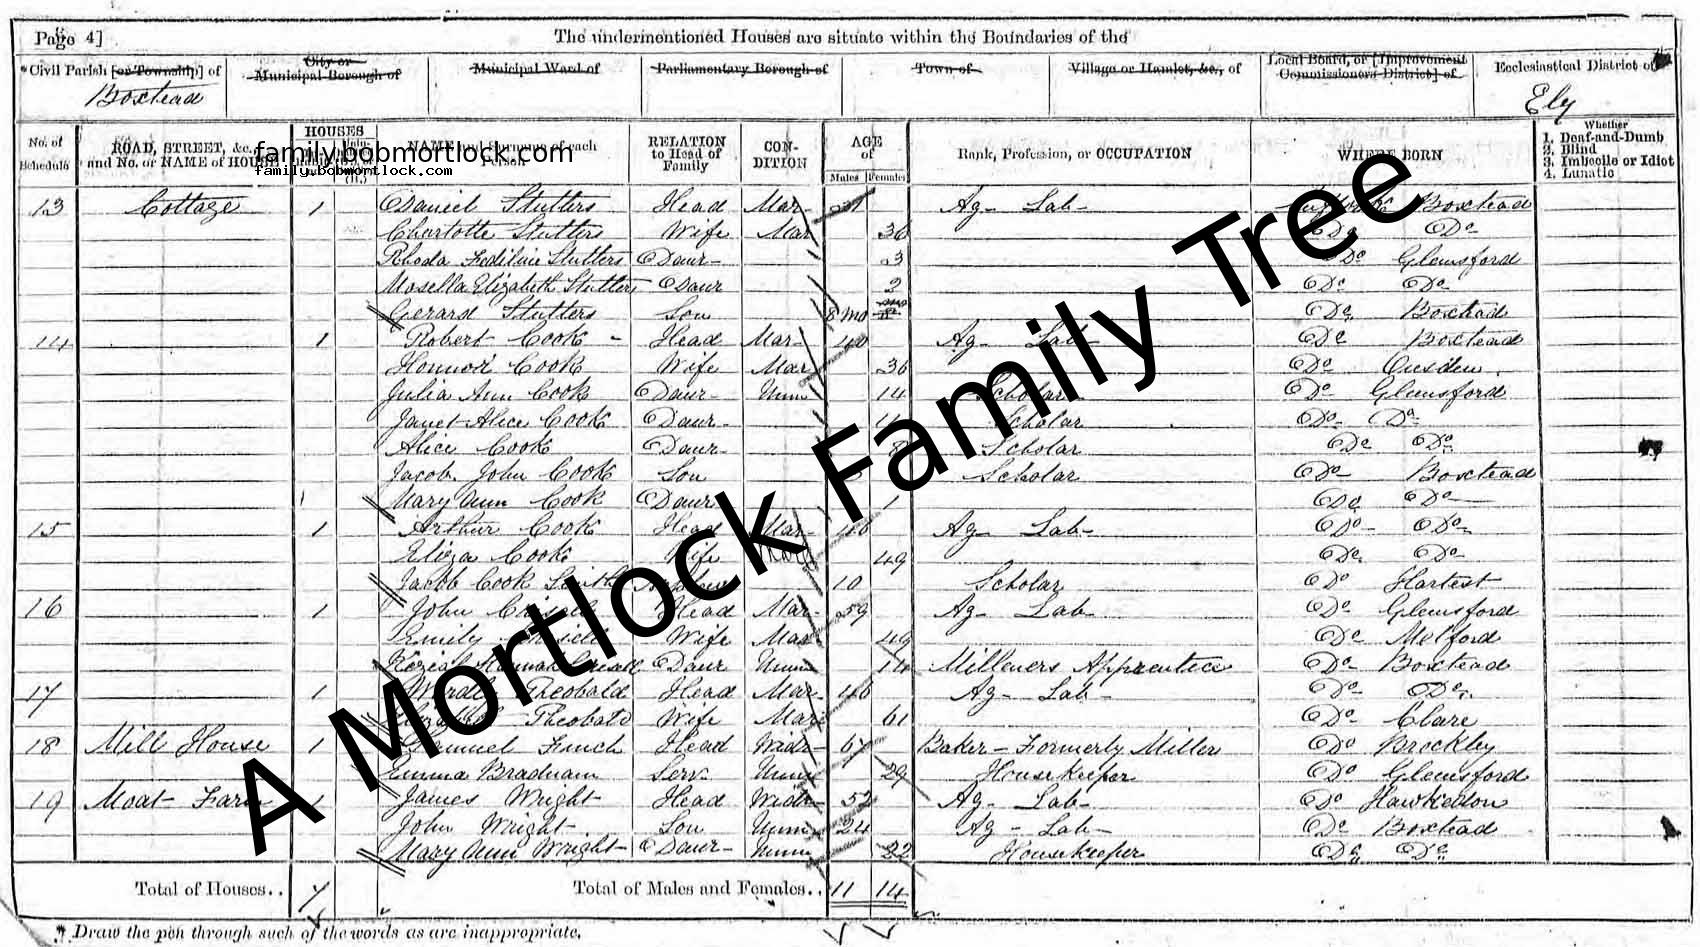 Page 4]
The undermentioned Houses are situate within the Boundaries of the
*Civil Parish [or Township] of
City or Municipal Borough of
Municipal Ward of
Parliamentary Borough of
Town of
Village or Hamlet, &c., of
Local Board, or [Improvement Commissioners District] of
Ecclesiastical District of
Boxtead
Ely
No. of Schedule
ROAD, STREET, &c., and No. or NAME of HOUSE
HOUSES
NAME and Surname of each Person
RELATION to Head of Family
CONDITION
AGE of
Males Females
Rank, Profession, or OCCUPATION
WHERE BORN
Whether
1. Deaf-and-Dumb
2. Blind
3. Imbecile or Idiot
4. Lunatic
family.bobmortlock.com
family.bobmortlock.com
13 Cottage 1 Daniel Stutters Head Mar 31 Ag- Lab- Boxtead
Charlotte Stutters Wife Mar 36 Do Do
Rhoda Stutters Daur- 3 Do Glemsford
Mosella Elizabeth Stutters Daur 2 Do Do
Gerard Stutters Son 8 mo Do Boxtead
14 1 Robert Cook - Head Mar- 40 Ag- Lab- Do Boxtead
Honnor Cook Wife Mar 36 Do Ousden
Julia Ann Cook Daur- Unm 14 Scholar Do Glemsford
Janet Alice Cook Daur- Scholar Do- Do
Alice Cook Daur- 8 Scholar Do Do
Jacob John Cook Son Scholar Do- Boxtead
Mary Ann Cook Daur 1 Do Do
15 1 Arthur Cook Head Mar- 46 Ag- Lab- Do- Do-
Eliza Cook Wife 49 Do Do
Jacob Cook Smith 10 Scholar Do Hartest
16 1 John Head Mar- 59 Ag- Lab- Do Glemsford
Emily Wife Mar 49 Do Melford
Keziah Hannah Daur Unm 14 Milleners Apprentice Do Boxtead
17 1 Theobald Head Mar- 46 Ag- Lab- Do- Do
Theobald Wife Mar 61 Do- Clare
18 Mill House 1 Samuel Finch Head Widr- 67 Baker- Formerly Miller Do Brockley
Emma Bradnam Serv. Unm 29 Housekeeper Do Glemsford
19 Moat Farm 1 James Wright Head Widr- 52 Ag- Lab- Do Hawkedon
John Wright- Son Unm 24 Ag- Lab- Do Boxtead
Mary Ann Wright- Daur- Unm 22 Housekeeper Do Do
Total of Houses.. 7
Total of Males and Females.. 11 14
* Draw the pen through such of the words as are inappropriate.
A Mortlock Family Tree